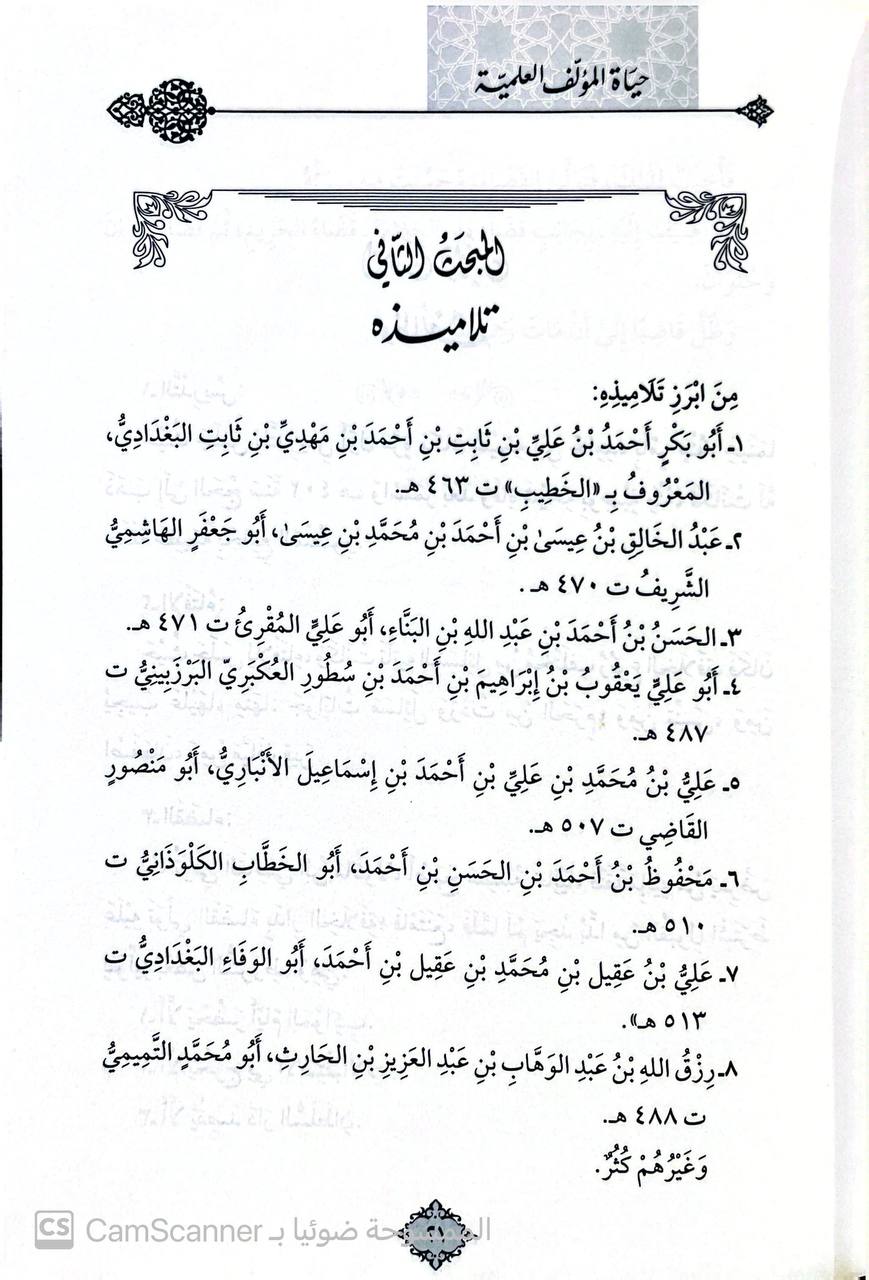 حيَاة المؤلّف العلميّة
المبحثُ الثّاني
تلاميذه
مِنَ ابْرَزِ تَلَامِيذِهِ:
١ـ أَبُو بَكْرٍ أَحْمَدُ بْنُ عَلِيِّ بْنِ ثَابِتِ بْنِ أَحْمَدَ بْنِ مَهْدِيِّ بْنِ ثَابِتِ البَغْدَادِيُّ،
المَعْرُوفُ بِـ «الخَطِيبِ» ت ٤٦٣ هـ.
٢ـ عَبْدُ الخَالِقِ بْنُ عِيسَىٰ بْنِ أَحْمَدَ بْنِ مُحَمَّدِ بْنِ عِيسَىٰ، أَبُو جَعْفَرٍ الهَاشِمِيُّ
الشَّرِيفُ ت ٤٧٠ هـ .
٣ـ الحَسَنُ بْنُ أَحْمَدَ بْنِ عَبْدِ اللهِ بْنِ البَنَّاءِ، أَبُو عَلِيٍّ المُقْرِئُ ت ٤٧١ هـ.
٤ـ أَبُو عَلِيٍّ يَعْقُوبُ بْنُ إِبْرَاهِيمَ بْنِ أَحْمَدَ بْنِ سُطُورِ العُكْبَرِيّ البَرْزَبِينِيُّ ت
٤٨٧ هـ.
٥ـ عَلِيُّ بْنُ مُحَمَّدِ بْنِ عَلِيِّ بْنِ أَحْمَدَ بْنِ إِسْمَاعِيلَ الأَنْبَارِيُّ، أَبُو مَنْصُورٍ
القَاضِي ت ٥٠٧ هـ.
٦ـ مَحْفُوظُ بْنُ أَحْمَدَ بْنِ الحَسَنِ بْنِ أَحْمَدَ، أَبُو الخَطَّابِ الكَلْوَذَانِيُّ ت
٥١٠ هـ.
٧ـ عَلِيُّ بْنُ عَقِيل بْنِ مُحَمَّدِ بْنِ عَقِيل بْنِ أَحْمَدَ، أَبُو الوَفَاءِ البَغْدَادِيُّ ت
٥١٣ هـ».
٨ـ رِزْقُ اللهِ بْنُ عَبْدِ الوَهَّابِ بْنِ عَبْدِ العَزِيزِ بْنِ الحَارِثِ، أَبُو مُحَمَّدٍ التَّمِيمِيُّ
ت ٤٨٨ هـ.
وَغَيْرُهُمْ كُثُرٌ.
٢١
الممسوحة ضوئيا بـ CamScanner
CS